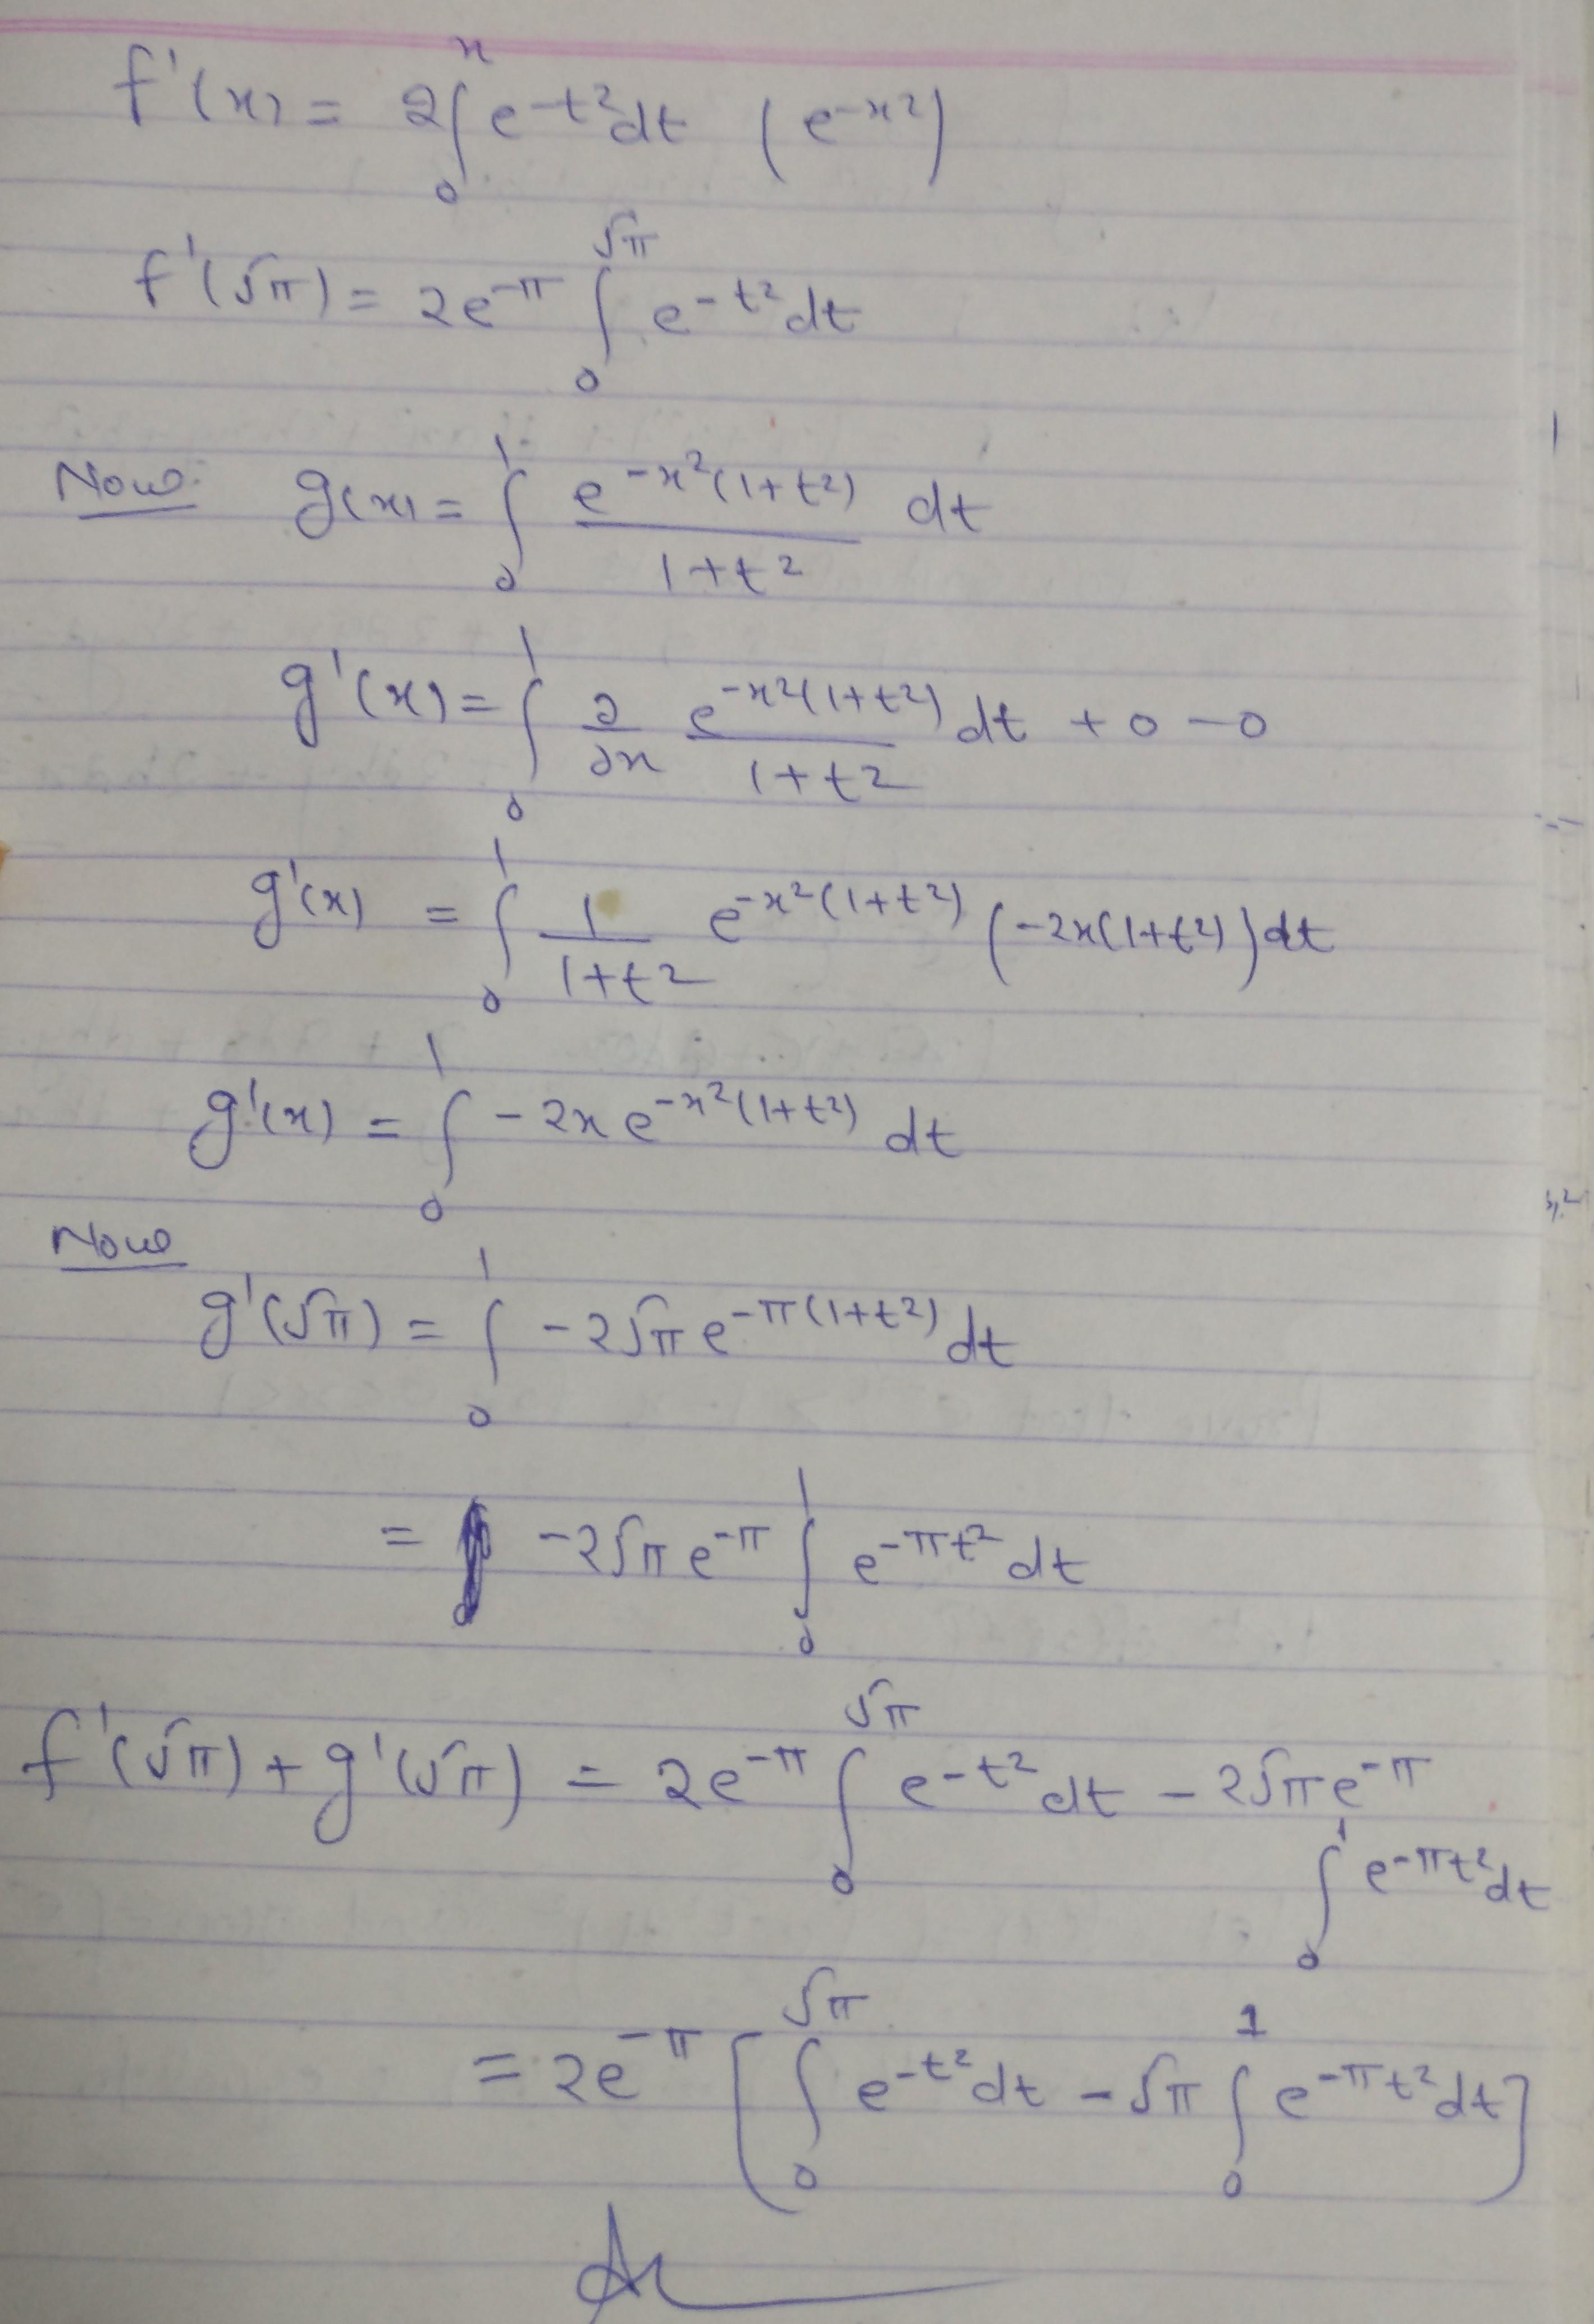 f'(x) = 2∫₀ˣ e^-t² dt (e^-x²)
f'(√π) = 2e^-π ∫₀^√π e^-t² dt
Now g(x) = ∫₀¹ e^-x²(1+t²) / 1+t² dt
g'(x) = ∫₀¹ ∂/∂x e^-x²(1+t²) / 1+t² dt + 0 - 0
g'(x) = ∫₀¹ 1/1+t² e^-x²(1+t²) (-2x(1+t²)) dt
g'(x) = ∫₀¹ -2x e^-x²(1+t²) dt
Now
g'(√π) = ∫₀¹ -2√π e^-π(1+t²) dt
= -2√π e^-π ∫₀¹ e^-πt² dt
f'(√π) + g'(√π) = 2e^-π ∫₀^√π e^-t² dt - 2√π e^-π
∫₀¹ e^-πt² dt
= 2e^-π [∫₀^√π e^-t² dt - √π ∫₀¹ e^-πt² dt]